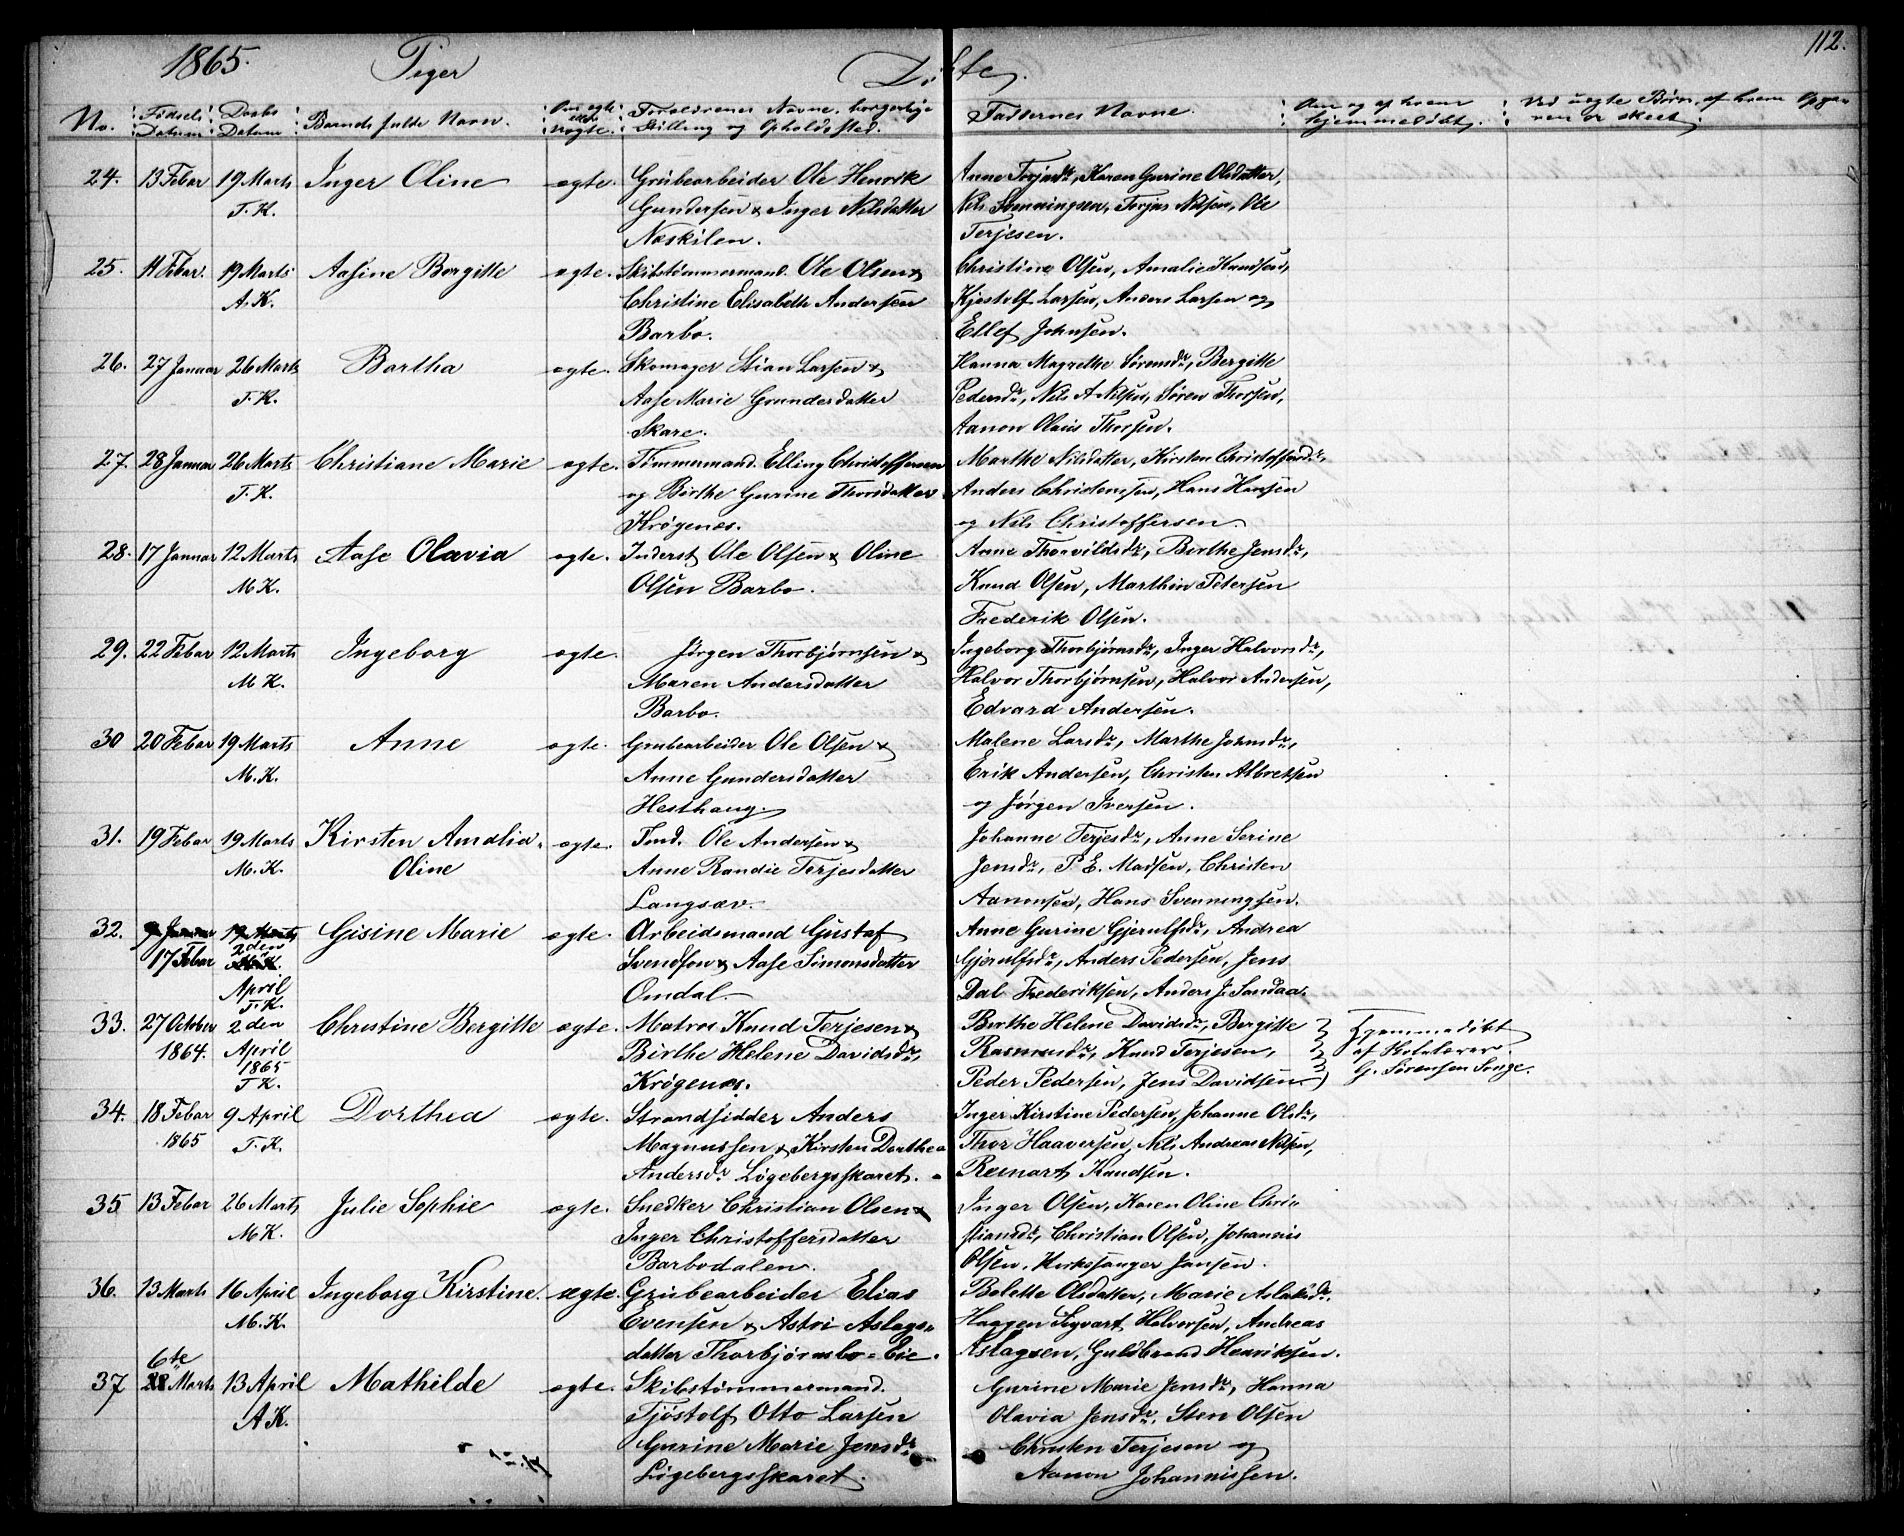 1865. Piger Døbte. 112.
No. Fødsels Datum Daabs Datum Barnets fulde Navn. Om ægte eller uægte. Forældrenes Navne, borgerlige Stilling og Opholdssted. Faddernes Navne. Om og af hvem hjemmedøbt. Ved uægte Børn, af hvem Opga-
ven er skeet.
24. 13 Febar 19 Marts Inger Oline ægte. Grubearbeider Ole Henrik Anne Terjesdr, Karen Gurine Olsdatter,
T. K. Gundersen & Inger Nilsdatter Nils Svenningsen, Terjus Nilsen, Ole
Næskilen. Terjesen.
25. 11 Febar. 19 Marts Aasine Borgitte ægte. Skibstømmermand. Ole Olsen & Christine Olsen, Amalie Knudsen,
A. K. Christine Elisabeth Andersen Kjøstolf Larsen, Anders Larsen og
Barbo. Ellef Johnsen.
26. 27 Januar 26 Marts Bertha ægte. Skomager Stian Larsen & Hanna Magrethe Sørensdr, Bergitte
T. K. Aase Marie Gundersdatter Pedersdr, Nils A. Nilsen, Søren Thorsen,
Skare. Aanon Olaus Thorsen.
27. 28 Januar 26 Marts Christiane Marie ægte. Tømmermand. Elling Christoffersen Marthe Nilsdatter, Kirsten Christoffersdr,
T. K. og Birthe Gurine Thorsdatter Anders Christensen, Hans Hansen
Krøgenæs. og Nils Christoffersen.
28. 17 Januar 12 Marts Aase Olavia ægte. Inderst Ole Olsen & Oline Anne Thorvildsdr, Berthe Jensdr,
M. K. Olsen Barbo. Knud Olsen, Marthin Petersen
Frederik Olsen.
29. 22 Febar 12 Marts Ingeborg ægte. Jørgen Thorbjørnsen & Ingeborg Thorbjørnsdr, Inger Halvorsdr,
M. K. Maren Andersdatter Halvor Thorbjørnsen, Halvor Andersen,
Barbo. Edvard Andersen.
30 20 Febar 19 Marts Anne ægte. Grubearbeider Ole Olsen & Malene Larsdr, Marthe Johnsdr,
M. K. Anne Gundersdatter Erik Andersen, Christen Albretsen
Hesthaug. og Jørgen Iversen.
31. 19 Febar 19 Marts Kirsten Amalia ægte. Tmd. Ole Andersen & Johanne Terjesdr, Anne Serine
M. K. Oline Anne Randie Terjesdatter Jensdr, P. E. Madsen, Christen
Langsæv. Aanonsen, Hans Svenningsen.
32. Januar 19 Marts Gisine Marie ægte. Arbeidsmand Gustaf Anne Gurine Gjerulfsdr, Andrea
17 Febar 2den Svendsen & Aase Simonsdatter Gjerulfsdr, Anders Pedersen, Jens
April Omdal. Dal Frederiksen, Anders J. Sandaa.
T. K.
33. 27 October 2den Christine Bergitte ægte. Matros Knud Terjesen & Birthe Helene Davidsdr, Bergitte Hjemmedøbt
1864. April Birthe Helene Davidsdr, Rasmusdr, Knud Terjesen, af Skolelærer
1865 Krøgenæs. Peder Pedersen, Jens Davidsen G. Sørensen Songe.
T. K.
34. 18 Febar 9 April Dorthea ægte. Strandsidder Anders Inger Kirstine Pedersen, Johanne Olsdr,
1865 T. K. Magnussen & Kirsten Dorthea Thor Haaversen, Nils Andreas Nilsen,
Andersdr Løgebergsskaret. Reinart Knudsen.
35 13 Febar 26 Marts Julie Sophie ægte. Snedker Christian Olsen & Inger Olsen, Karen Oline Chri-
M. K. Inger Christoffersdatter stiansdr, Christian Olsen, Johannis
Barbodalen. Olsen, Kirkesanger Jansen.
36. 13 Marts 16 April Ingeborg Kirstine. ægte. Grubearbeider Elias Bolette Olsdatter, Marie Aslaksdr.
M. K. Evensen & Astri Aslags- Haagen Sigvart Halvorsen, Andreas
datter Thorbjørnsbo-Eie. Aslagsen, Guldbrand Henriksen.
6te
37 28 Marts 13 April Mathilde ægte. Skibstømmermand. Gurine Marie Jensdr, Hanna
A K. Tjøstolf Otto Larsen Olavia Jensdr, Sten Olsen
Gurine Marie Jensdr Christen Terjesen og
Løgebergsskaret. Aanon Johannissen.